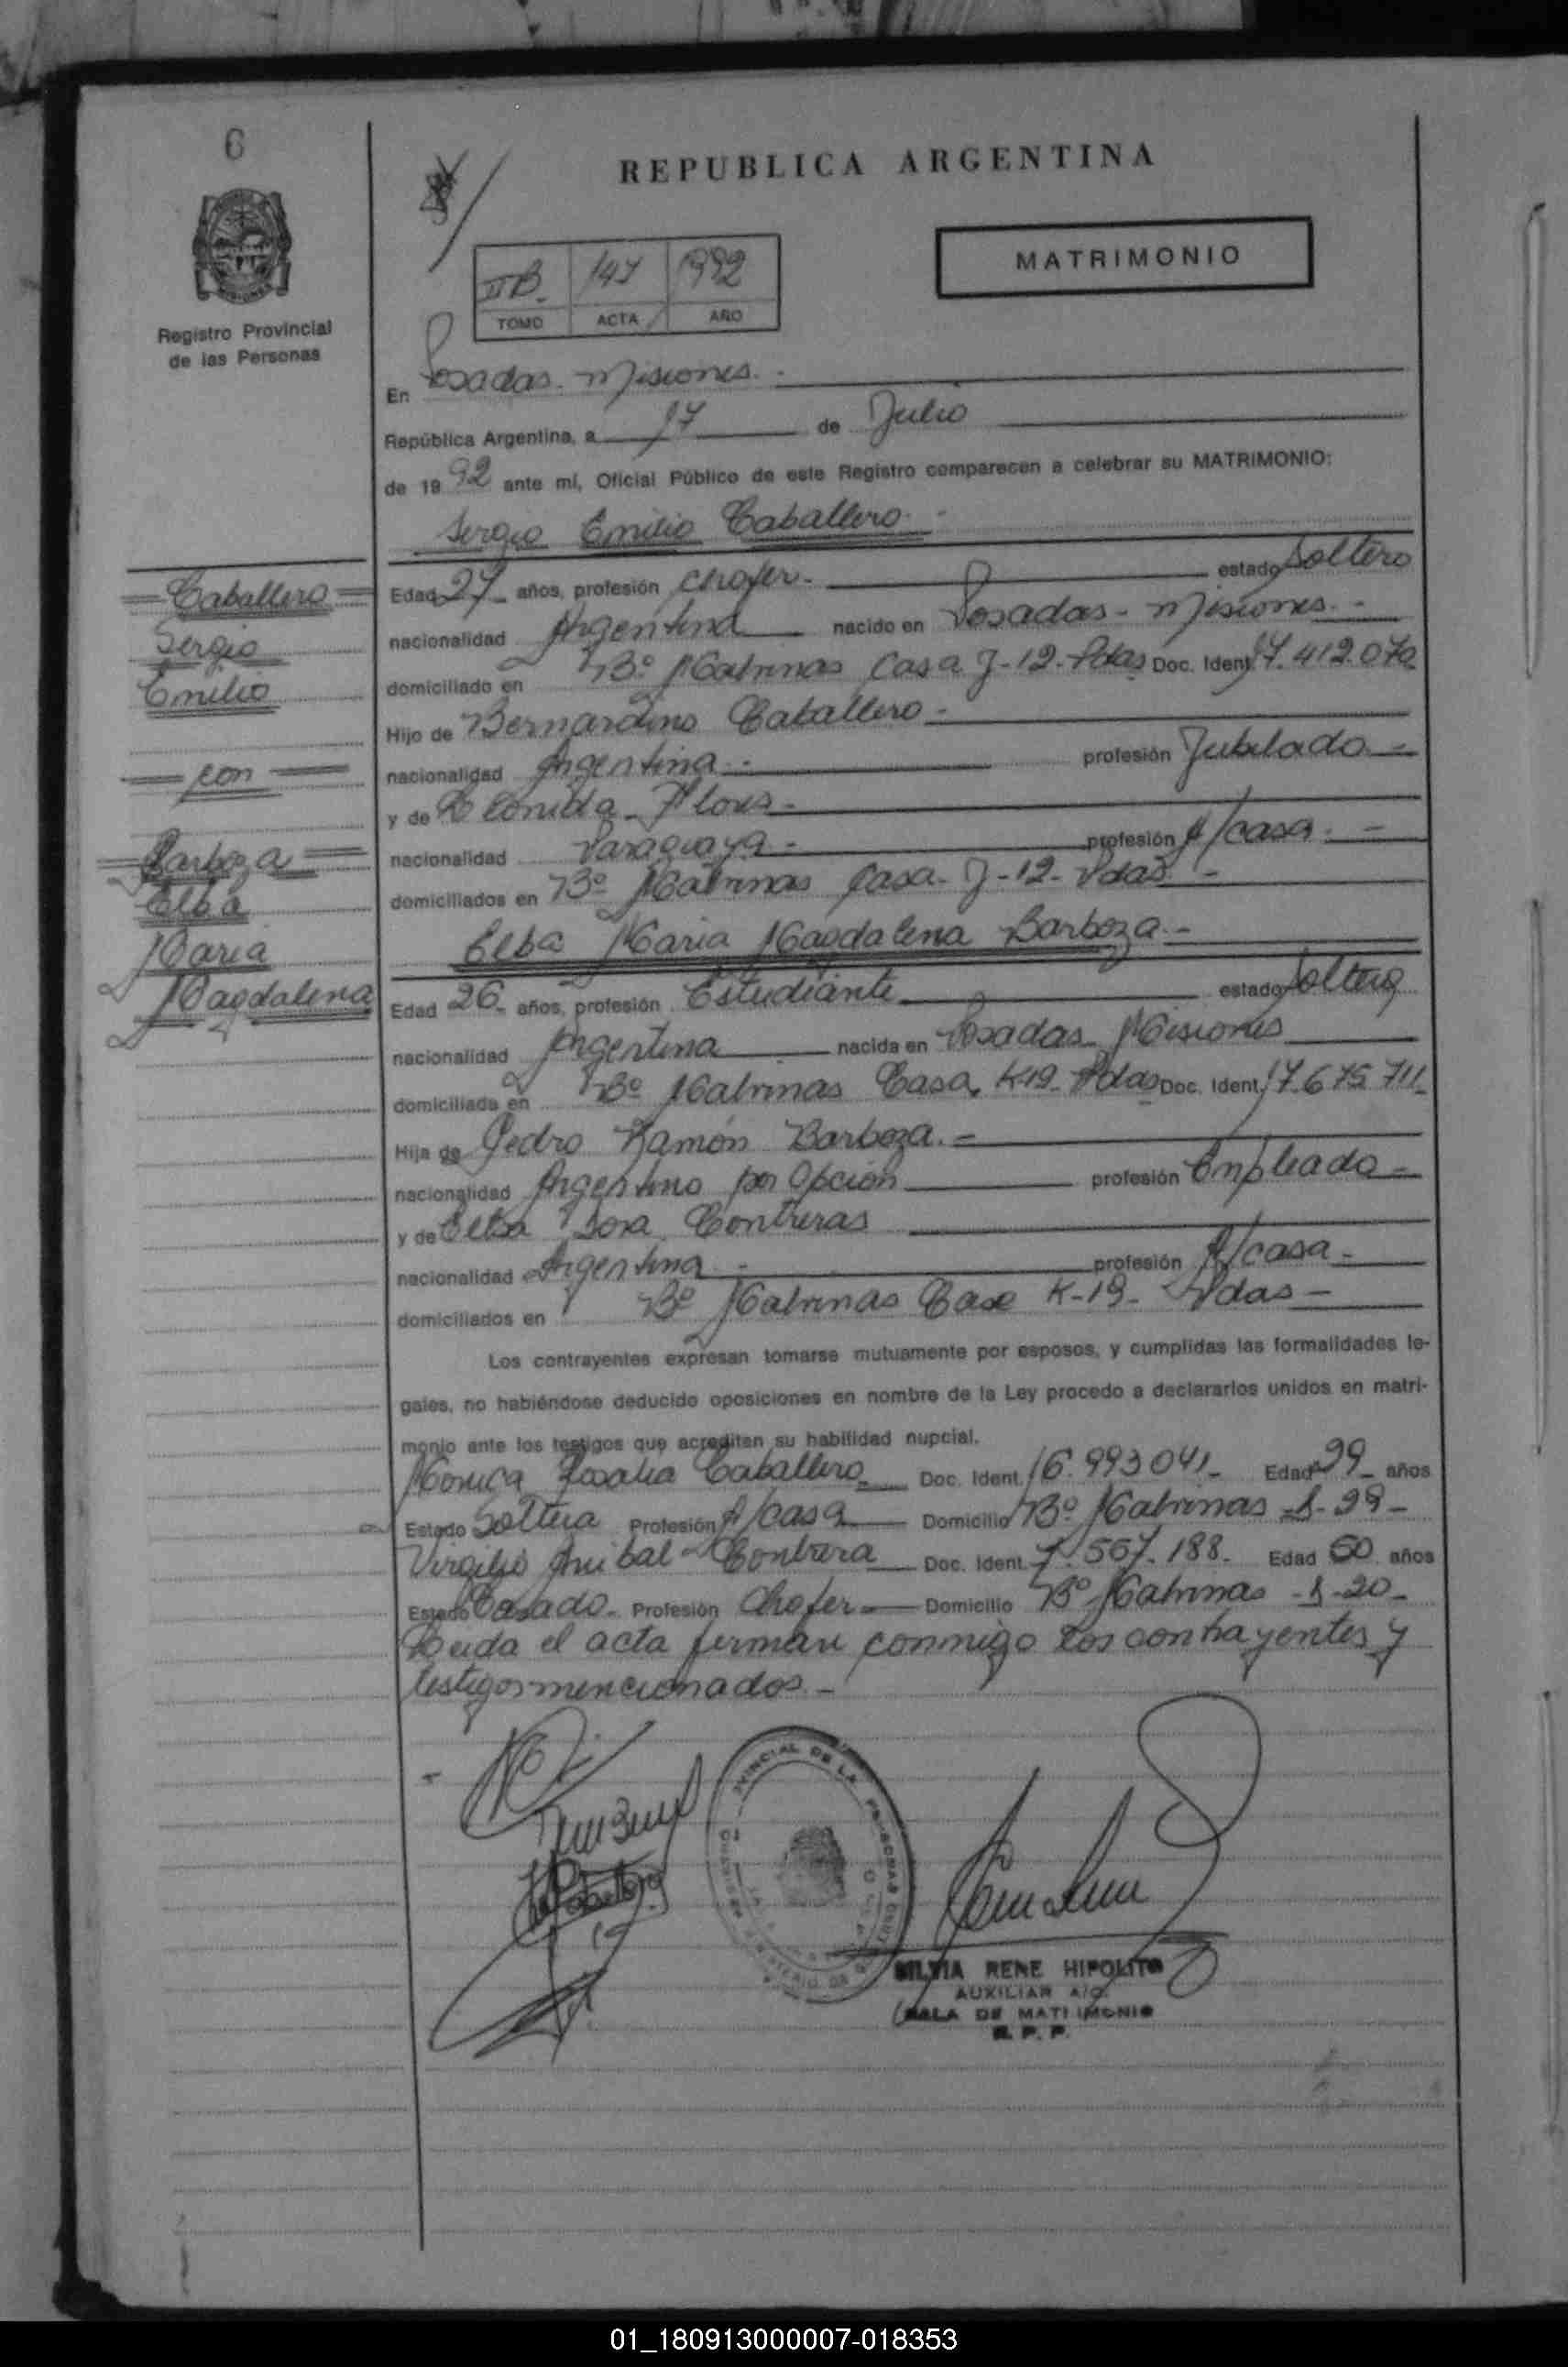 6
REPUBLICA ARGENTINA
MATRIMONIO
IIB. 147 1992
TOMO ACTA AÑO
Registro Provincial
de las Personas
En Posadas. Misiones.-
República Argentina, a 17 de Julio
de 1992 ante mí, Oficial Público de este Registro comparecen a celebrar su MATRIMONIO:
Sergio Emilio Caballero.-
Caballero
Sergio
Emilio
con
Barboza
Elba
Maria
Magdalena
Edad 27 años, profesión Chofer.- estado Soltero
nacionalidad Argentina nacido en Posadas - Misiones.-
domiciliado en Bº Malvinas Casa J-12- Pdas Doc. Ident. 17.412.070
Hijo de Bernardino Caballero-
nacionalidad Argentina.- profesión Jubilado.-
y de Leonida Flores-
nacionalidad Paraguaya- profesión A/casa.-
domiciliados en Bº Malvinas Casa- J-12- Pdas.-
Elba Maria Magdalena Barboza.-
Edad 26- años, profesión Estudiante estado Soltera
nacionalidad Argentina nacida en Posadas- Misiones
domiciliada en Bº Malvinas Casa K-19- Pdas Doc. Ident. 17.675.711-
Hija de Pedro Ramón Barboza.-
nacionalidad Argentino por Opción profesión Empleado-
y de Elba Contreras
nacionalidad Argentina.- profesión A/casa-
domiciliados en Bº Malvinas Casa K-19- Pdas-
Los contrayentes expresan tomarse mutuamente por esposos, y cumplidas las formalidades le-
gales, no habiéndose deducido oposiciones en nombre de la Ley procedo a declararlos unidos en matri-
monio ante los testigos que acrediten su habilidad nupcial.
Monica Rosalia Caballero Doc. Ident. 16.993.041- Edad 29- años
Estado Soltera Profesión A/casa Domicilio Bº Malvinas
Virgilio Anibal Contrera Doc. Ident. 7.557.188. Edad 50 años
Estado Casado- Profesión Chofer- Domicilio Bº Malvinas
Leida el acta firman conmigo los contrayentes y
testigos mencionados.-
SILVIA RENE HIPOLITO
AUXILIAR A/C.
SALA DE MATRIMONIO
R. P. P.
01_180913000007-018353